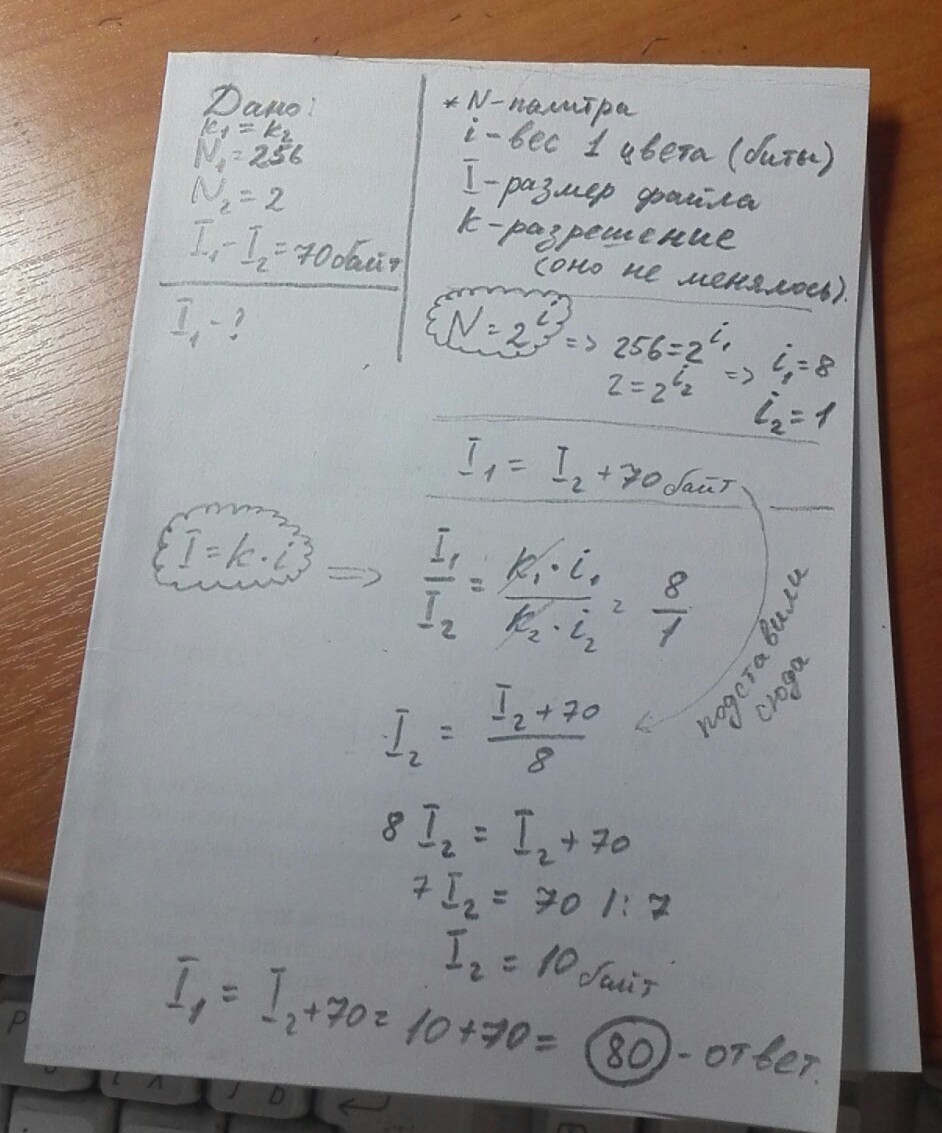 Дано:
k₁ = k₂
N₁ = 256
N₂ = 2
I₁ - I₂ = 70 байт
I₁ - ?
* N - палитра
i - вес 1 цвета (биты)
I - размер файла
K - разрешение
(оно не менялось).
N = 2ⁱ => 256 = 2^i₁ => i₁ = 8
2 = 2^i₂ i₂ = 1
I₁ = I₂ + 70 байт
подставили
сюда
I = k · i => I₁/I₂ = K₁ · i₁ / K₂ · i₂ = 8/1
I₂ = I₂ + 70 / 8
8 I₂ = I₂ + 70
7 I₂ = 70 |: 7
I₂ = 10 байт
I₁ = I₂ + 70 = 10 + 70 = 80 - ответ.